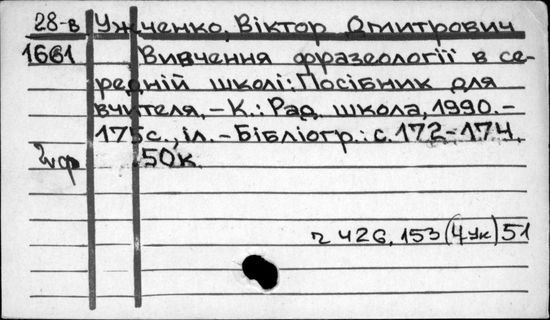 28-в Ужченко, Віктор Дмитрович
1661 Вивчення фразеології в се-
редній школі: Посібник для
вчителя. – К.: Рад. школа, 1990. –
175 с., іл. – Бібліогр.: с. 172-174.
50к.
ч 426.153(4Ук)51